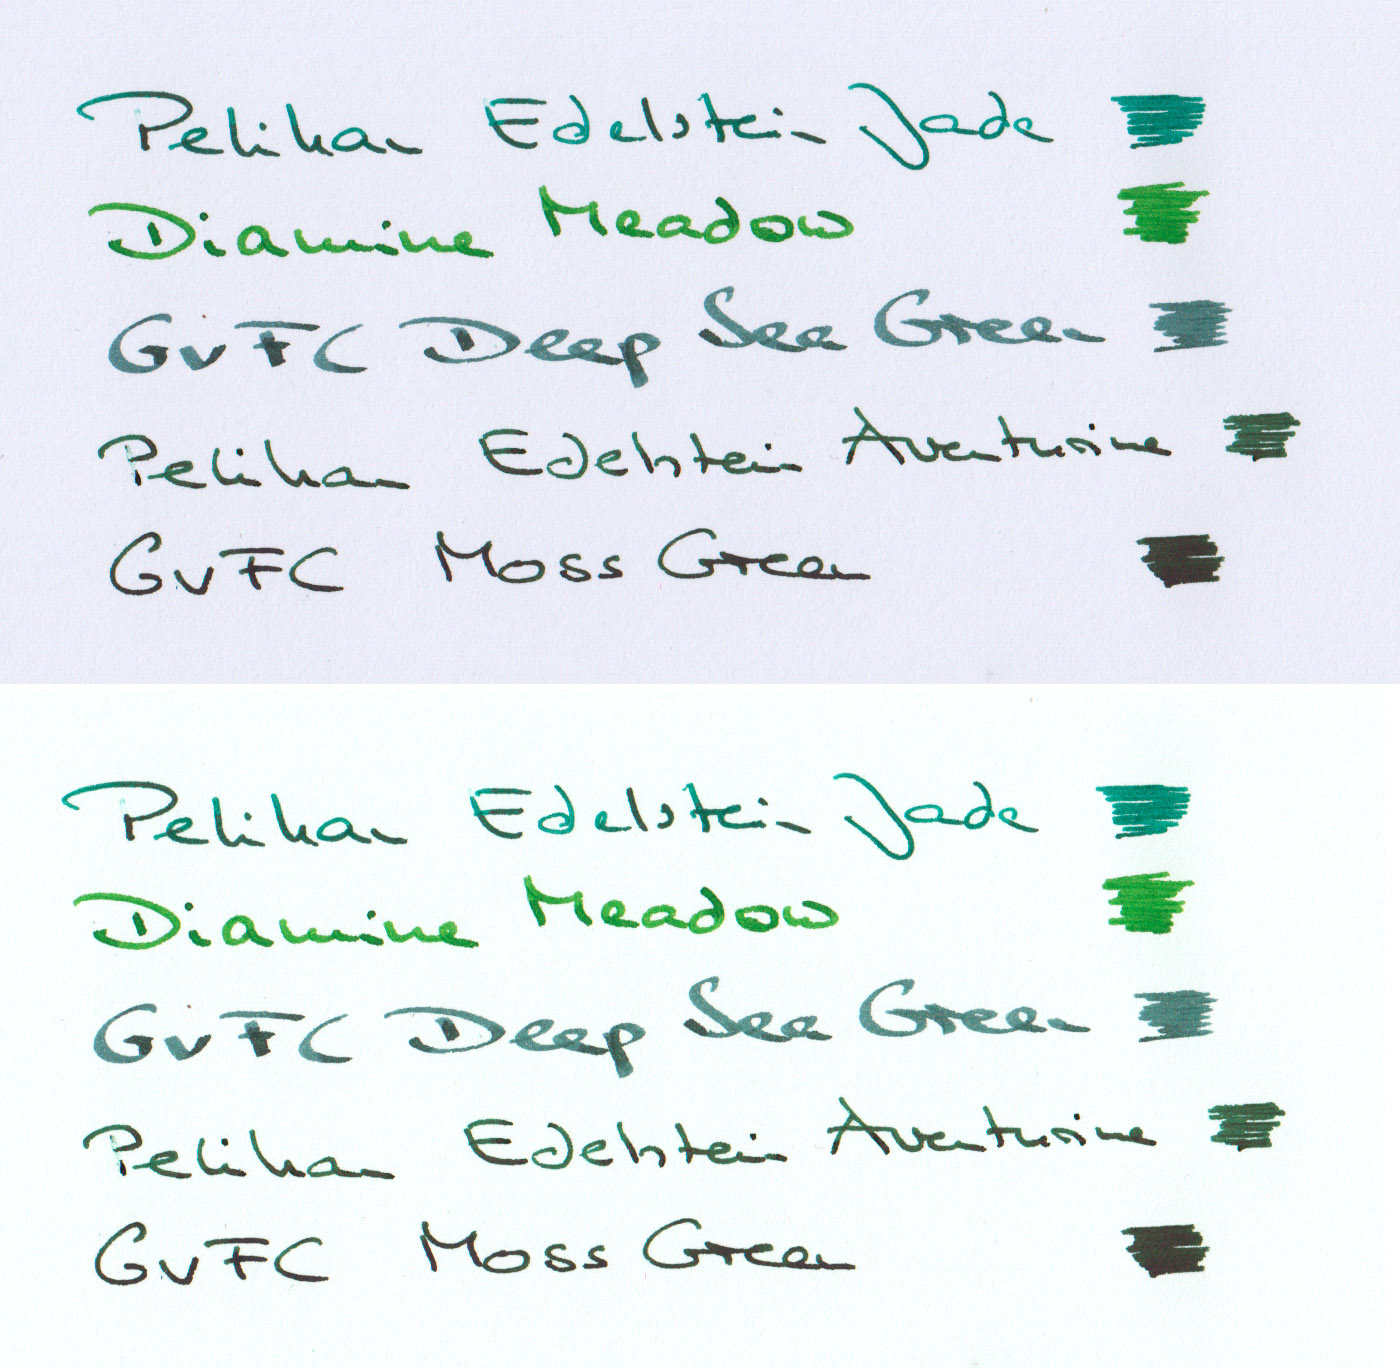 Pelikan Edelstein Jade
Diamine Meadow
GvFC Deep Sea Green
Pelikan Edelstein Aventurine
GvFC Moss Green
Pelikan Edelstein Jade
Diamine Meadow
GvFC Deep Sea Green
Pelikan Edelstein Aventurine
GvFC Moss Green